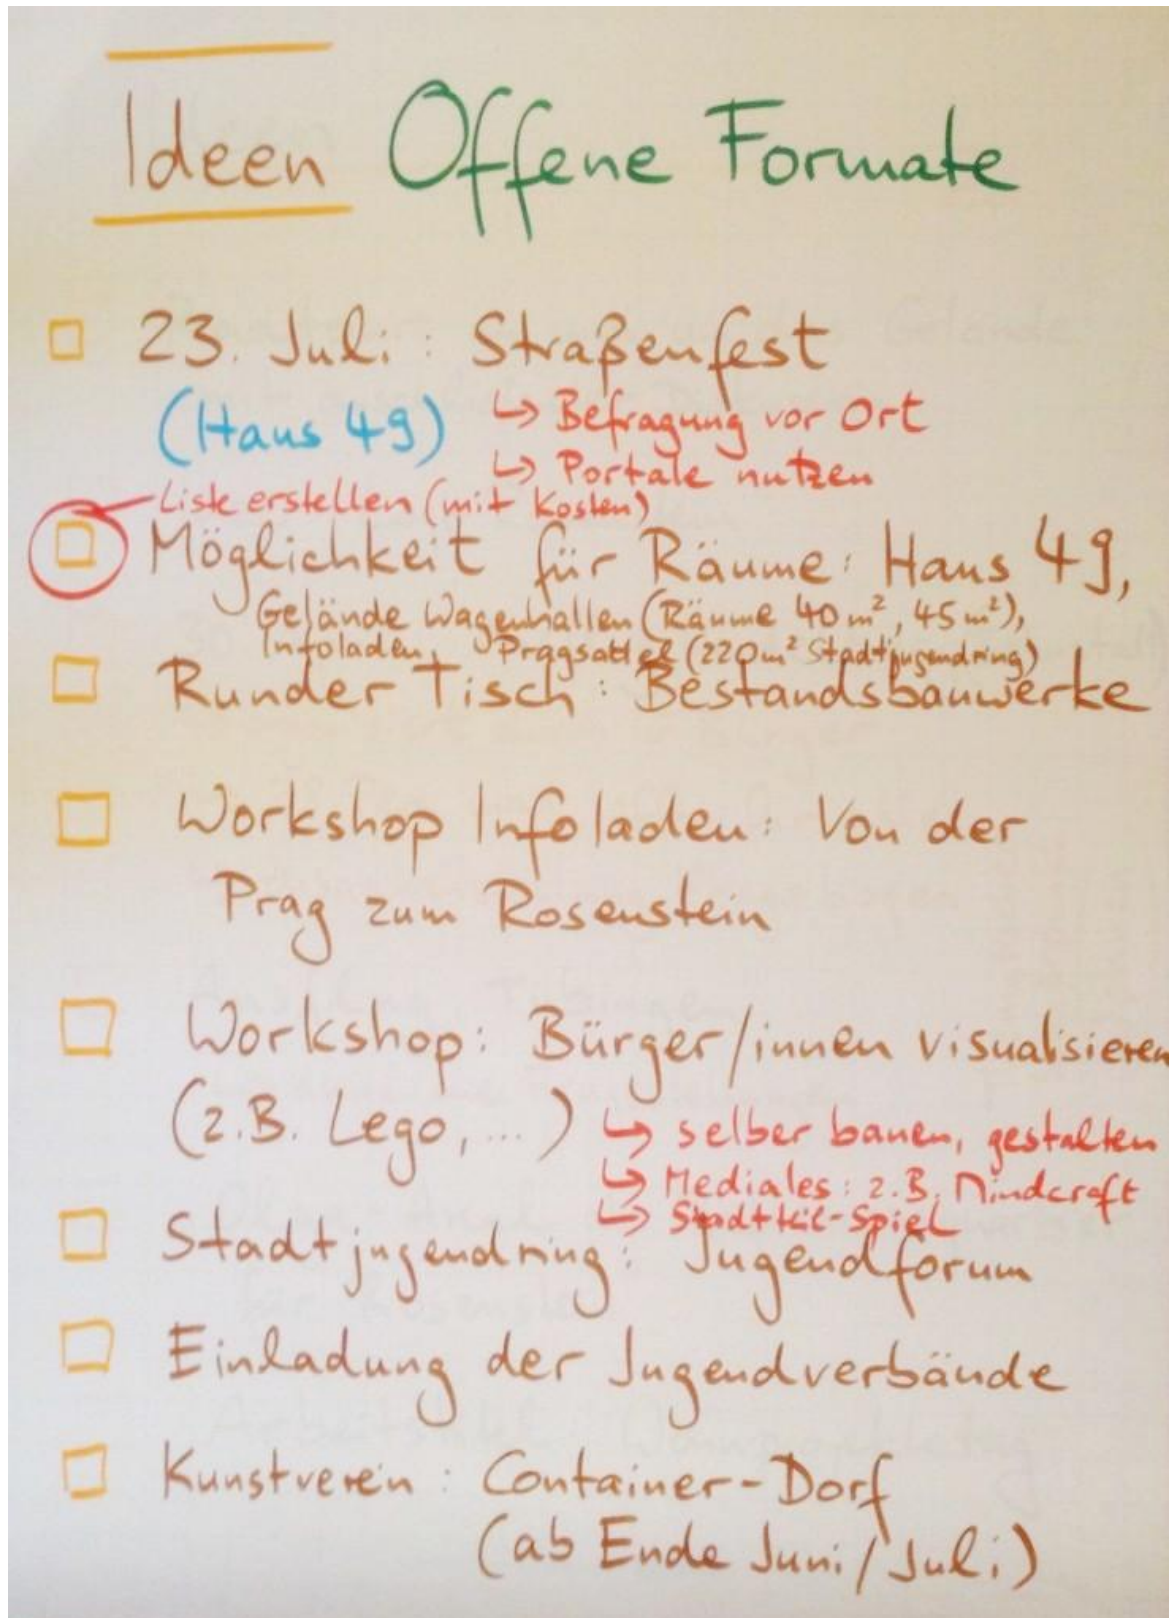 Ideen Offene Formate
23. Juli: Straßenfest
(Haus 49) ↳ Befragung vor Ort
↳ Portale nutzen
Liste erstellen (mit Kosten)
Möglichkeit für Räume: Haus 49,
Gelände Wagenhallen (Räume 40m², 45m²),
Infoladen, Pragsattel (220m² Stadtjugendring)
Runder Tisch: Bestandsbauwerke
Workshop Infoladen: Von der
Prag zum Rosenstein
Workshop: Bürger/innen visualisieren
(z.B. Lego, ...) ↳ selber bauen, gestalten
↳ Mediales: z.B. Mindcraft
↳ Spiel
Stadtjugendring: Jugendforum
Einladung der Jugendverbände
Kunstverein: Container-Dorf
(ab Ende Juni/Juli)